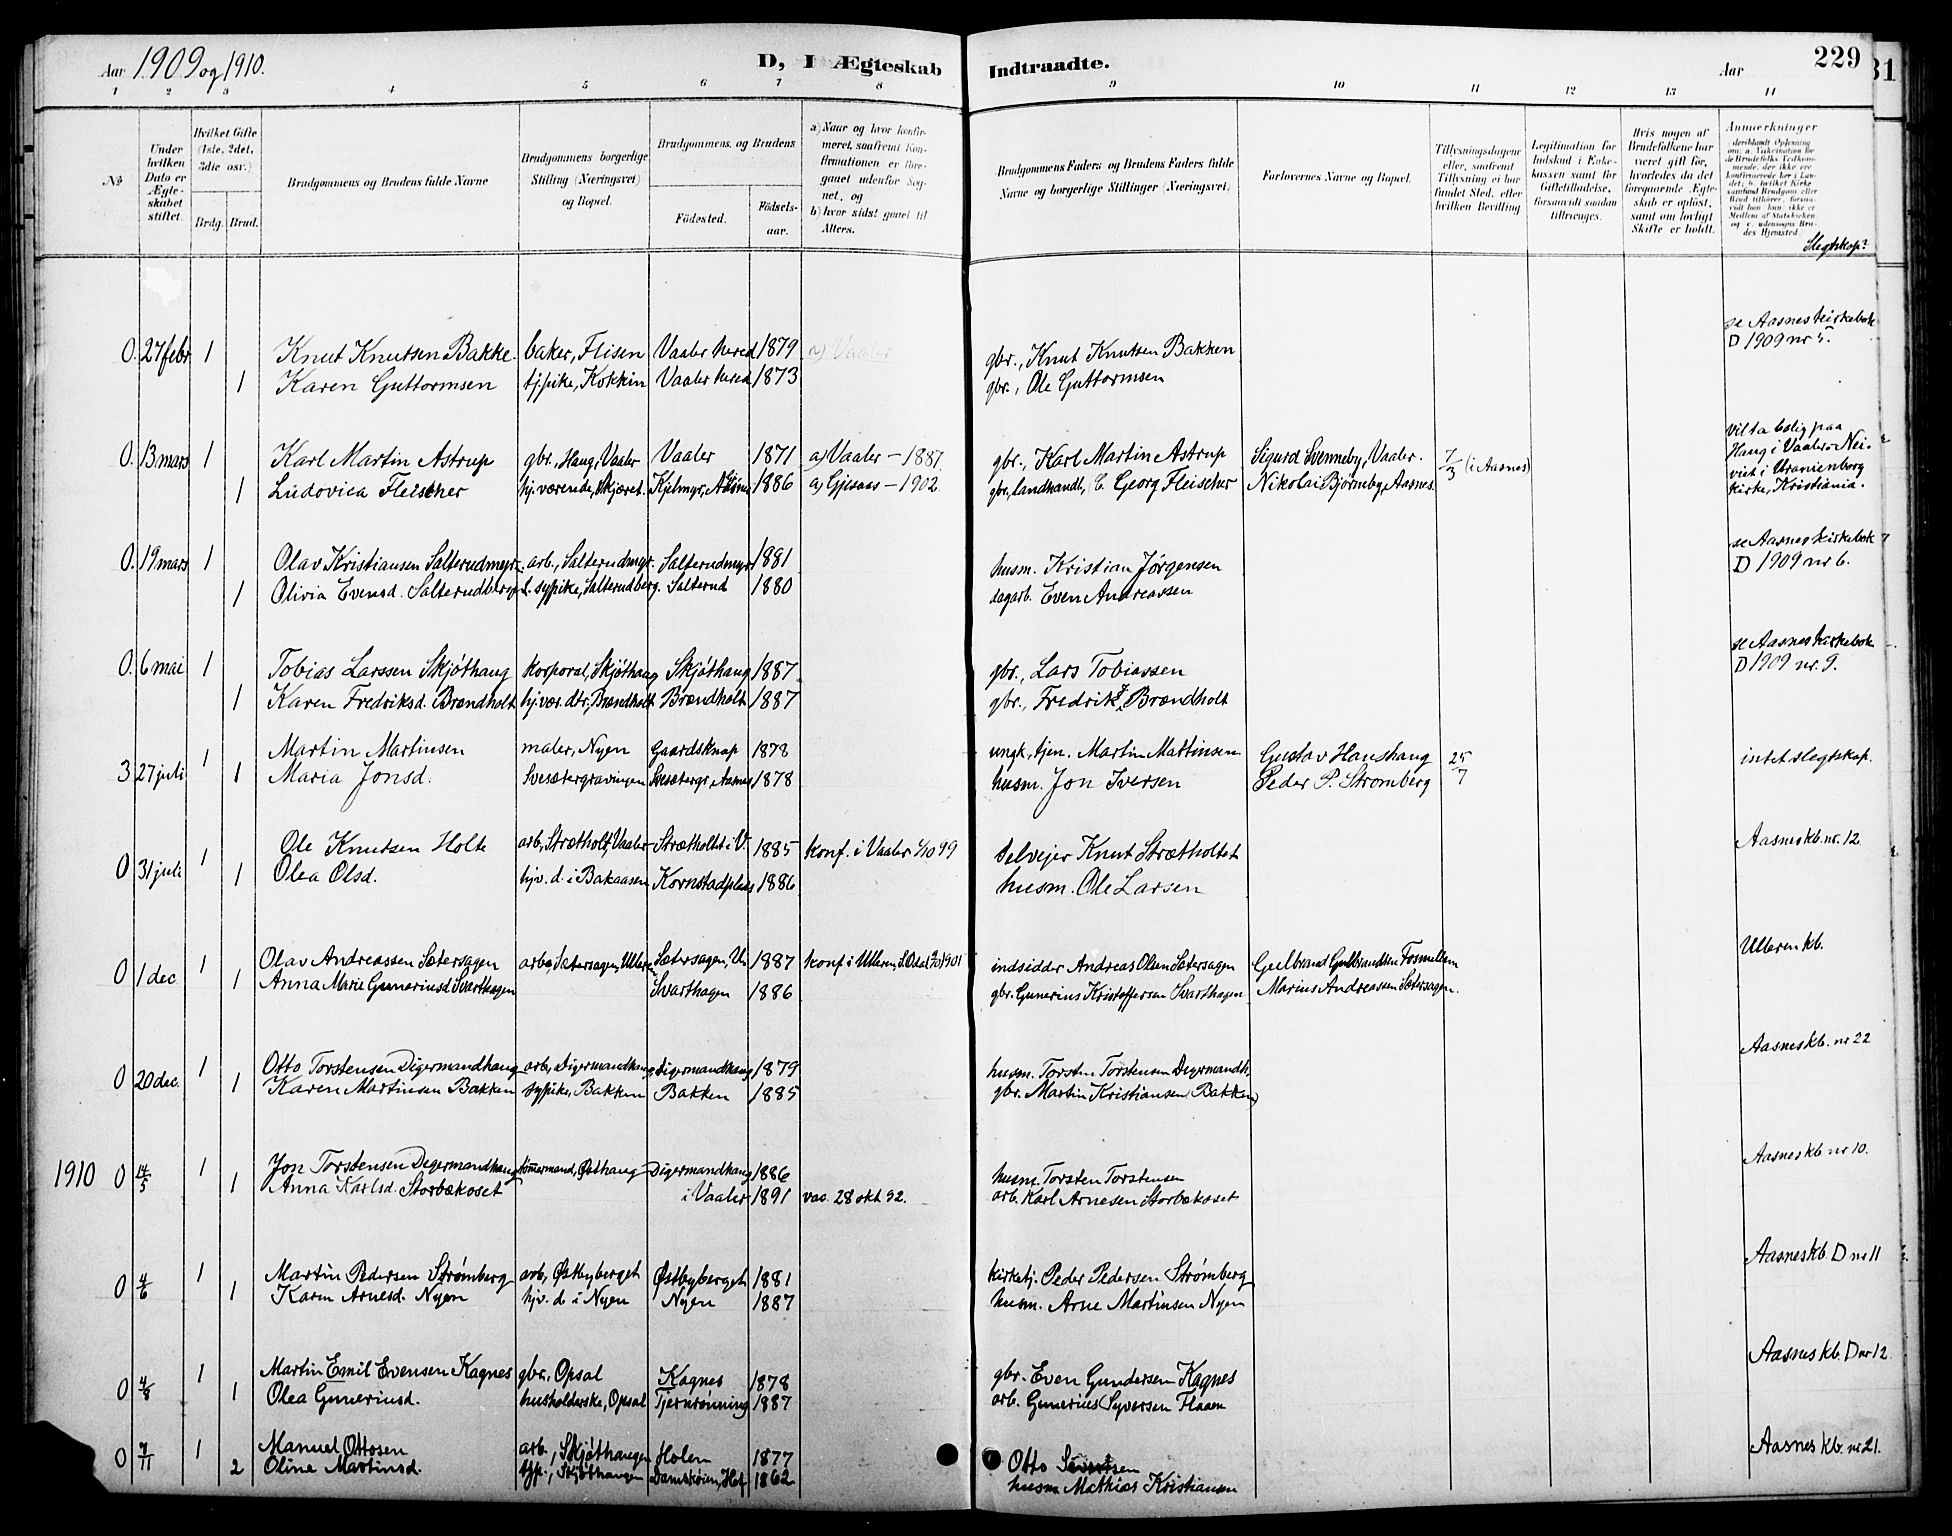 Aar 1909 og 1910.
D, I Ægteskab Indtraadte.
Aar
229
31
1 2 3 4 5 6 7 8 9 10 11 12 13 14
№
Under hvilken Dato er Ægteskabet stiftet.
Hvilket Gifte (1ste, 2det, 3die osv.)
Brdg. Brud.
Brudgommens og Brudens fulde Navne
Brudgommens borgerlige Stilling (Næringsvei) og Bopæl.
Brudgommens og Brudens
Födested.
Födselsaar.
a) Naar og hvor konfirmeret, saafremt Konfirmationen er foregaaet udenfor Sognet, og
b) hvor sidst gaaet til Alters.
Brudgommens Faders og Brudens Faders fulde Navne og borgerlige Stillinger (Næringsvei.
Forlovernes Navne og Bopæl.
Tillysningsdagene eller, saafremt Tillysning ei har fundet Sted, efter hvilken Bevilling
Legitimation for Indskud i Enkekassen samt for Giftetilladelse, forsaavidt saadan tiltrænges.
Hvis nogen af Brudefolkene har været gift før, hvorledes da det foregaaende Ægteskab er opløst, samt om lovligt Skifte er holdt.
Anmærkninger
Slegtskap?
0. 27 febr 1 Knut Knutsen Bakke. baker, Flisen Vaaler hered 1879 a) Vaaler gbr., Knut Knutsen Bakken se Aasnes kirkebok D 1909 nr 5.
1 Karen Guttormsen tj.pike, Kokkin Vaaler hered 1873 gbr., Ole Guttormsen
0. 13 mars 1 Karl Martin Astrup gbr., Haug, Vaaler Vaaler 1871 a) Vaaler – 1887. gbr., Karl Martin Astrup Sigurd Svenneby, Vaaler. 7/3 (i Aasnes) vil ta bolig paa Haug i Vaaler. Nei. viet i Uranienborg kirke, Kristiania.
1 Ludovica Fleischer hj.værende, Skjæret. Kjelmyr, Aasnes 1886 a) Gjesaas – 1902. gbr, landhandl, C. Georg Fleischer Nikolai Bjørneby, Aasnes.
0. 19 mars 1 Olav Kristiansen Salterudmyr. arb., Salterudmyr. Salterudmyr 1881 husm. Kristian Jørgensen se Aasnes kirkebok D 1909 nr 6.
1 Olivia Evensd. Salterudberg. sypike, Salterudberg. Salterud 1880 dagarb. Even Andreassen
0. 6 mai 1 Tobias Larssen Skjøthaug korporal, Skjøthaug Skjøthaug 1887. gbr., Lars Tobiassen se Aasnes kirkebok D 1909 nr. 9.
1 Karen Fredriksd. Brændholt hj.vær. dtr., Brændholt Brændholt 1887 gbr., Fredrik Brændholt
3 27 juli 1 Martin Martinsen maler, Nyen Gaardsknap 1878 ungk., tjen. Martin Mattinsen Gustav Haushaug 25/7 intet slegtskap.
1 Maria Jonsd. Svesætergravingen Svesætergr., Aasnes 1878 husm. Jon Iversen Peder P. Strømberg
0 31 juli 1 Ole Knutsen Holte arb., Strætholt, Vaaler Strætholtet i V. 1885 konf. i Vaaler 1/10 99 selveier Knut Strætholtet Aasnes kb. nr. 12.
1 Olea Olsd. hjv. d. i Bakaasen Kornstadplass 1886 husm. Ole Larsen
0 1 dec 1 Olav Andreassen Sætersagen arb., Sætersagen, Ulleren Sætersagen, Ul. 1887 konf i Ulleren, S. Odal 1901 indsidder Andreas Olsen Sætersagen Gulbrand Gulbrandsen Fosmellem Ulleren kb.
1 Anna Marie Gunneriusd Svarthagen Svarthagen 1886 gbr. Gunerius Kristoffersen Svarthagen Marius Andreassen Sætersagen.
0 20 dec. 1 Otto Torstensen Digermandhaug arb., Digermandhaug Digermandhaug 1879 husm. Torsten Torstensen Degermandh. Aasnes kb. nr 22
1 Karen Martinsen Bakken sypike, Bakken Bakken 1885 gbr. Martin Kristiansen (Bakken)
1910 0 14/5 1 Jon Torstensen Degermandhaug tömmermand, Østhaug Digermandhaug 1886 husm. Torsten Torstensen Aasnes kb nr 10.
1 Anna Karlsd. Storbækoset i Vaaler 1891 vac. 28 okt 92. arb. Karl Arnesen Storbækoset
0 4/6 1 Martin Pedersen Strømberg arb., Østbyberget Østbyberget 1881 kirketj. Peder Pedersen Strømberg Aasnes kb D nr 11
1 Karen Arnesd. Nyen hjv. d. i Nyen Nyen 1887 husm. Arne Martinsen Nyen
0 4/8 1 Martin Emil Evensen Kagnes gbr., Opsal Kagnes 1878 gbr. Even Gundersen Kagnes Aasnes kb. D nr 12.
1 Olea Gunneriusd. husholderske, Opsal Tjernrønning 1887 arb. Gunerius Syversen Flaaen
0 7/11 1 Manuel Ottosen arb., Skjøthaugen Holen 1877 Otto Sivertsen Aasnes kb. nr 21.
2 Oline Martinsd. tjp., Skjøthaugen Damskoien, Hof 1862 husm Mathias Kristiansen